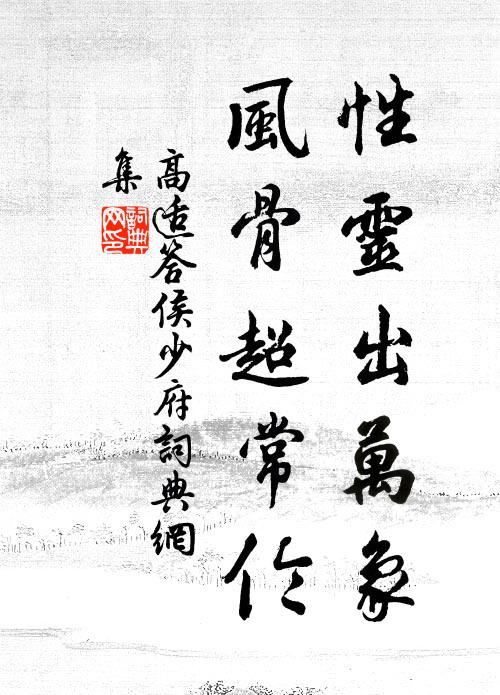 性靈出萬象
風骨超常伦
高适答侯少府詞典網
集
詞典网印